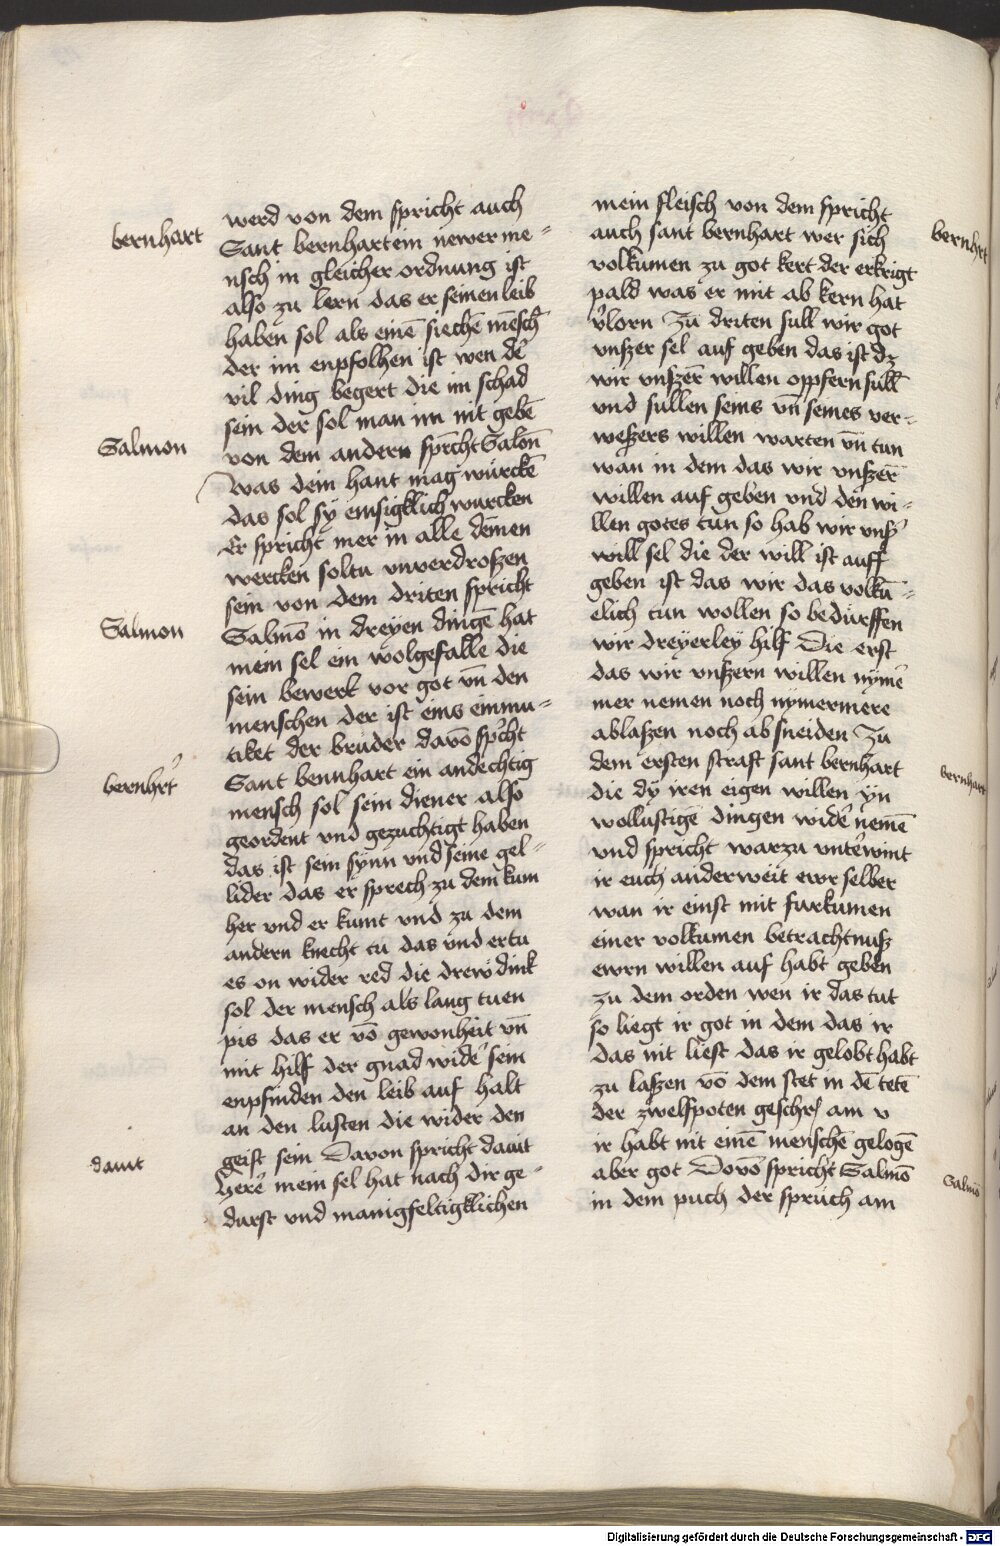 werd von dem spricht auch
bernhart
Sant bernhart ein newer me⸗
nsch in gleicher ordnung ist
also zu lern das er seinen leib
haben sol als einē siechē mēsch̄
der im enpfolhen ist wen dē
vil ding begert die im schad
sein der sol man im nit gebē
Salmon
von dem andern sprīcht Salon̄
Was dein hant mag würckē
das sol sy emsigklich wurcken
Er spricht mer in alle deinen
wercken soltu unverdroszen
sein von dem driten spricht
Salmon
Salmō in dreyen dingē hat
mein sel ein wolgefalle die
sein bewert vor got vn̄ den
menschen der ist eins einmu⸗
tiket der bruder davō sp̄cht
bernhrt
Sant bennhart ein andechtig
mensch sol sein diener also
geordent vnd gezuchtigt haben
das ist sein synn vnd seine gel⸗
lider das er sprech zu dem kum
her vnd er kumt vnd zu dem
andern knecht tu das vnd er tu
es on wider red die drew dink
sol der mensch als lang tuen
pis das er vō gewonheit vn̄
mit hilf der gnad widē sein
enpfinden den leib auf halt
an den lusten die wider den
geist sein Davon spricht dauit
dauit
herē mein sel hat nach dir ge⸗
durst vnd manigfeltigklichen
mein fleisch von dem spricht
auch sant bernhart wer sich
bernhrt
volkumen zu got kert der erkrigt
pald was er mit ab kern hat
v̄lorn Zu driten sull wir got
vnszer sel auf geben das ist dz
wir vnszer̄ willen oppfern sull̄
vnd sullen seins vn̄ seines ver⸗
weszers willen warten vn̄ tun
wan in dem das wir vnszer̄
willen auf geben vnd den wi⸗
llen gotes tun so hab wir vnsz̄
will sel die der will ist auff
geben ist das wir das volkū⸗
elich tun wollen so bedürffen
wir dreyerley hilf Die erst
das wir vnszern willen nymē
mer nemen noch nymermere
ablaszen noch absneiden Zu
dem ersten straft sant bernhart
bernhart
die dy iren eigen willen yn
wollustigē dingen widē nemē
vnd spricht warzu vntēwint
ir euch anderweit ewr selber
wan ir einst mit furkumen
einer volkumen betrachtnusz
ewrn willen auf habt geben
zu dem orden wen ir das tut
so liegt ir got in dem das ir
das nit liest das ir gelobt habt
zu laszen vō dem stet in dē tetē
der zwelfpoten geschr̄ am v
ir habt nit einē menschē gelogē
aber got Dovō spricht Salmō
Salmō
in dem puch der spruch am
Digitalisierung gefördert durch die Deutsche Forschungsgemeinschaft - DFG